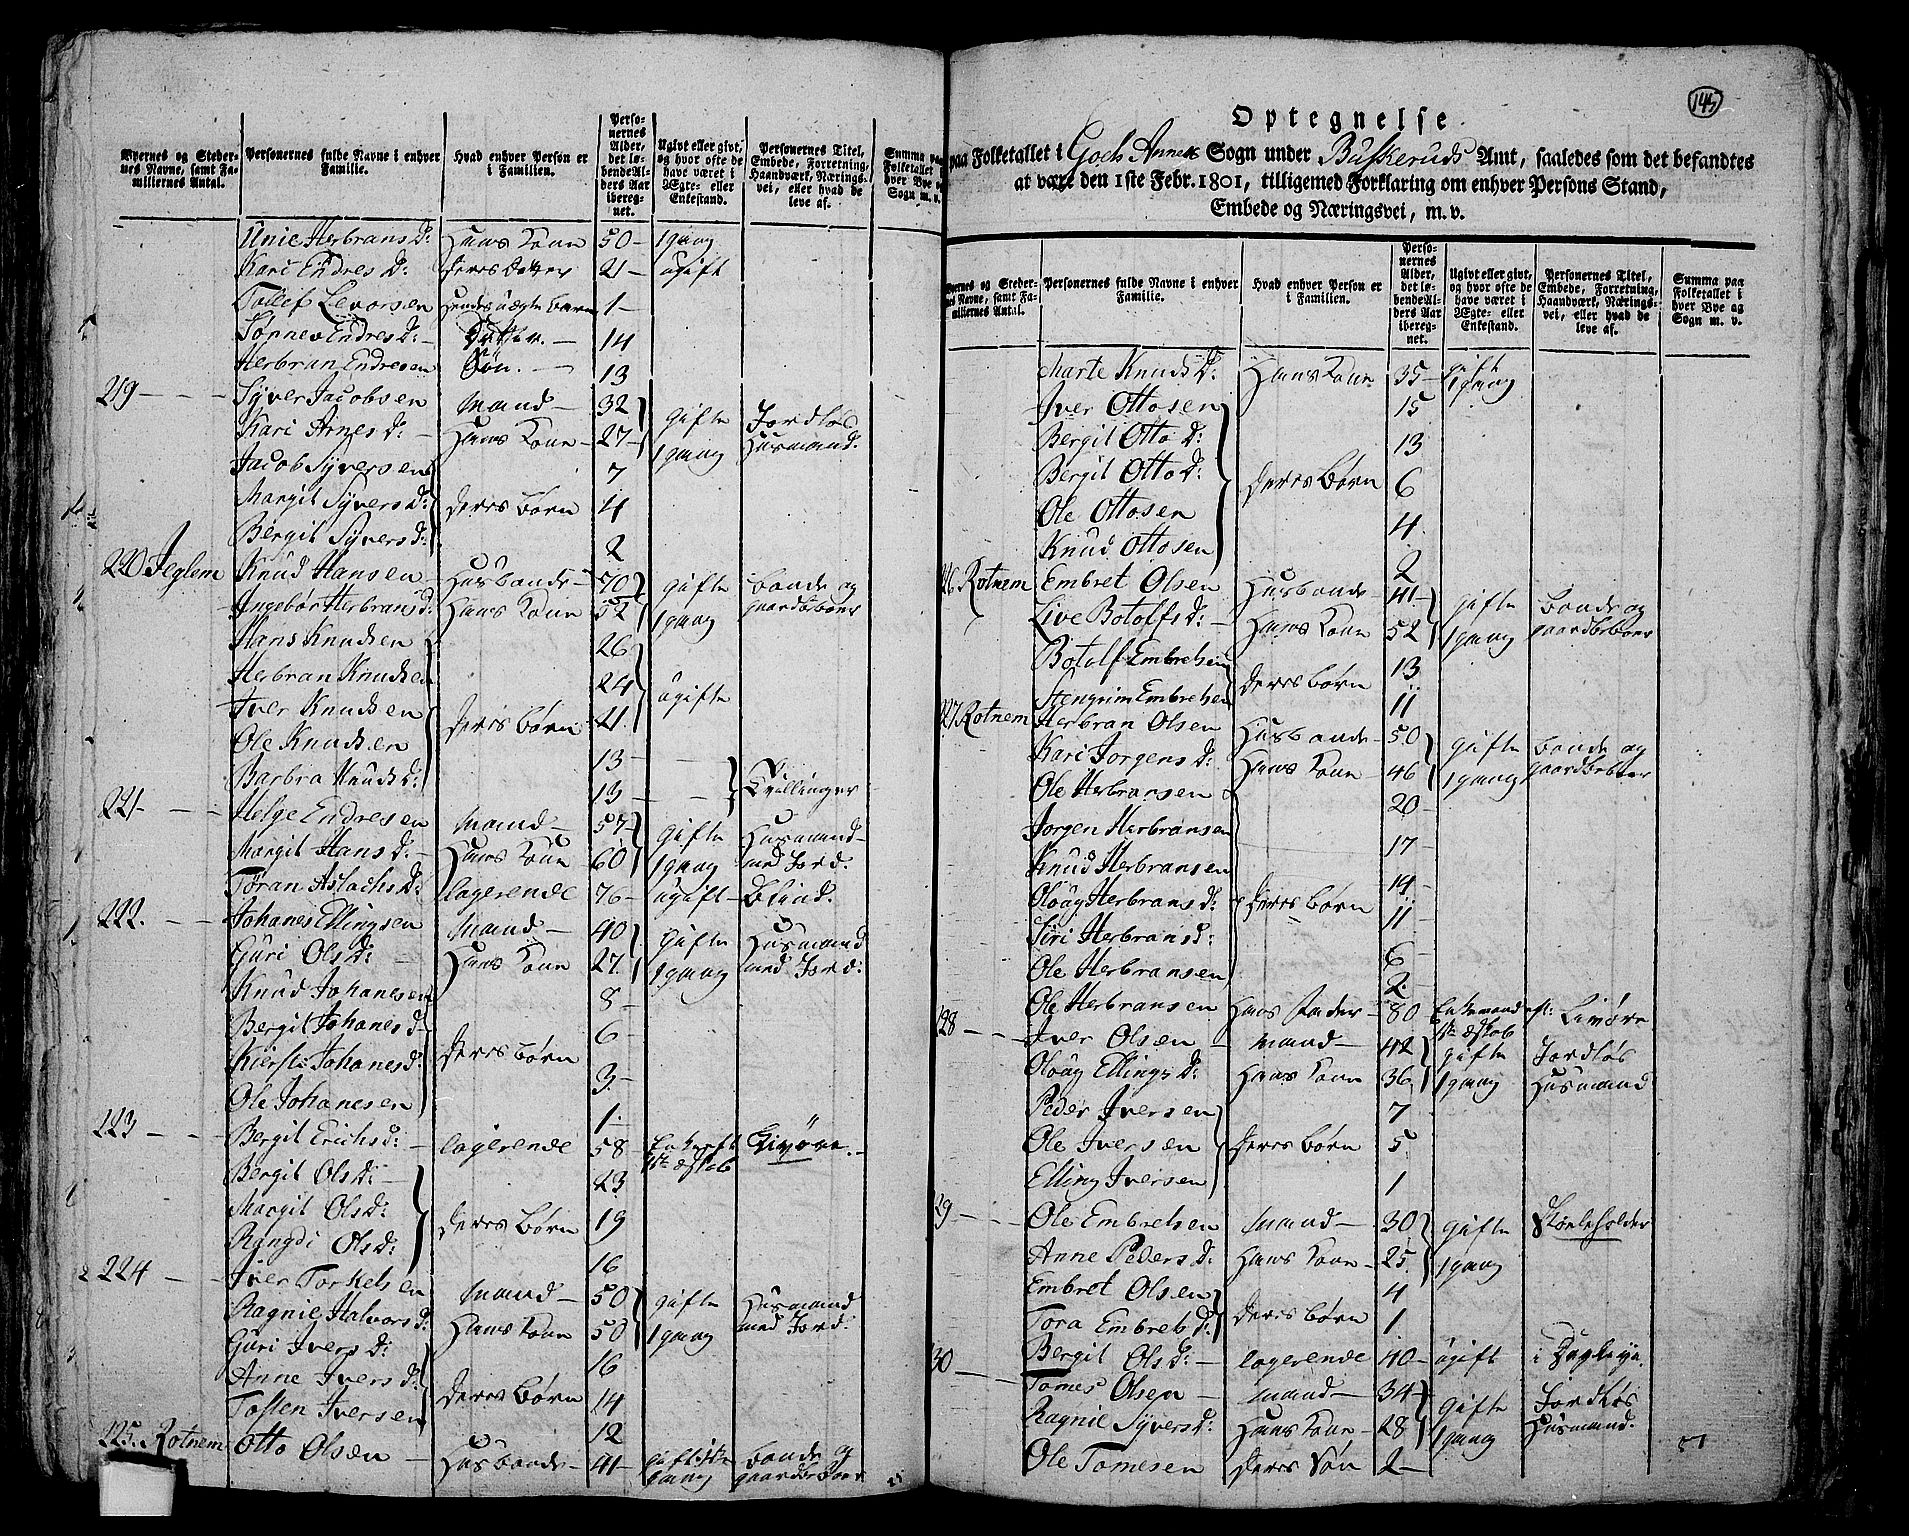 Byernes og Steder-
nes Navne, samt Fa-
miliernes Antal.
Personernes fulde Navne i enhver
Familie.
Hvad enhver Person er
i Familien.
Perso-
nernes
Alder,
det lø-
bende Al-
ders Aar
ibereg-
net.
Ugivt eller givt,
og hvor ofte de
have været i
Ægte- eller
Enkestand.
Personernes Titel,
Embede, Forretning,
Haandværk, Nærings-
vei, eller hvad de
leve af.
Summa paa
Folketallet i
hver Bye og
Sogn m. v.
Unie Herbrans D: Hans Kone 50 - 1 gang
Kari Endres D: deres Datter 21 - ugift
Tollef Levorsen Hendes uægte barn 1 -
Tønnev Endres D: - Datter. - 14
Herbran Endresen Søn. - 13
219 - - - Syver Jacobsen Mand - 32 gifte 1 gang Jordløs Husmand.
Kari Arnes D: - Hans Kone - 27 -
Jacob Syversen 7
Margit Syvers D: deres Børn 4
Bergit Syvers D: 2
220 Jeglem Knud Hansen - Husbonde - 70 gifte 1 gang bonde og gaardbeboer
Ingebør Herbrans D: Hans Kone 52
Hans Knudsen 26
Herbran Knudsen 24 ugifte
Iver Knudsen deres Børn 21.
Ole Knudsen 13 -
Barbra Knuds D: 13 - Tvillinger
221 - - Helge Endresen Mand - 57 - gifte 1 gang Husmand med Jord.
Margit Hans D: - Hans Kone 60
Tøran Aslachs D: logerende 76 - ugift - Blind.
222. - - Johanes Ellingsen Mand - 40 gifte 1 gang Husmand med Jord:
Guri Ols D: - Hans Kone 27.
Knud Johanesen 8 -
Bergit Johanes D - 6 -
Kiersti Johanes D: deres børn 3. -
Ole Johanesen 1 -
223 - - - Bergit Erichs D: - logerende 58 - Enke eft 1ste Ægteskab Livøre.
Bergit Ols D: - 23
Margit Ols D: deres Børn 19
Rangdi Ols D: 16
224 - - Iver Torkelsen Mand - 50 gifte 1 gang Husmand med Jord:
Ragnie Halvors D: Hans Kone 50
Guri Ivers D: 16
Anne Ivers D: deres Børn 14
Tosten Iversen 12
225. Rotnem Otto Olsen - Husbonde - 41 - gift 1ste gang bonde og gaardbeboer
145
Optegnelse
paa Folketallet i Goels Annex Sogn under Buskeruds Amt, saaledes som det befandtes
at være den 1ste Febr. 1801, tilligemed Forklaring om enhver Persons Stand,
Embede og Næringsvei, m. v.
Byernes og Steder-
nes Navne, samt Fa-
miliernes Antal.
Personernes fulde Navne i enhver
Familie.
Hvad enhver Person er
i Familien.
Perso-
nernes
Alder,
det lø-
bende Al-
ders Aar
ibereg-
net.
Ugivt eller givt,
og hvor ofte de
have været i
Ægte- eller
Enkestand.
Personernes Titel,
Embede, Forretning,
Haandværk, Nærings-
vei, eller hvad de
leve af.
Summa paa
Folketallet i
hver Bye og
Sogn m. v.
Marte Knuds D: Hans Kone 35 - gift 1 gang
Iver Ottosen 15
Bergit Otto D: 13
Bergit Otto D: deres Børn 6
Ole Ottosen 4.
Knud Ottosen 2
226 Rotnem Embret Olsen Husbonde - 41 - gifte 1 gang bonde og gaardbeboer
Live Botolfs D: - Hans Kone 52
Botolf Embretsen deres børn 13
Stengrim Embretsen 11
227 Rotnem Herbran Olsen Husbonde - 50 gifte 1 gang bonde og gaardbeboer
Kari Jorgens D: Hans Kone - 46
Ole Herbransen 20 -
Jorgen Herbransen 17
Knud Herbransen 14 -
Oloug Herbrans D: deres børn 11 -
Siri Herbrans D: 6 -
Ole Herbransen 2.
Ole Herbransen Hans Fader - 80 Enkemand eft: 1ste Ægteskab Livøre
228 - - Iver Olsen - Mand - 42 gifte 1 gang Jordløs Husmand
Oloug Ellings D: Hans Kone 36
Peder Iversen 7
Ole Iversen deres Børn 5
Elling Iversen 1
229 - - - Ole Embretsen Mand - 30 gifte 1 gang Skoleholder
Anne Peders D: Hans Kone - 25
Embret Olsen deres børn 4
Tora Embret D: 1
Bergit Ols D: - logerende 40 - ugift i
230 - - Tomes Olsen - Mand - 34 gifte 1 gang Jordløs Husmand.
Ragnie Syvers D: Hans Kone - 28
Ole Tomesen deres Søn 2 -